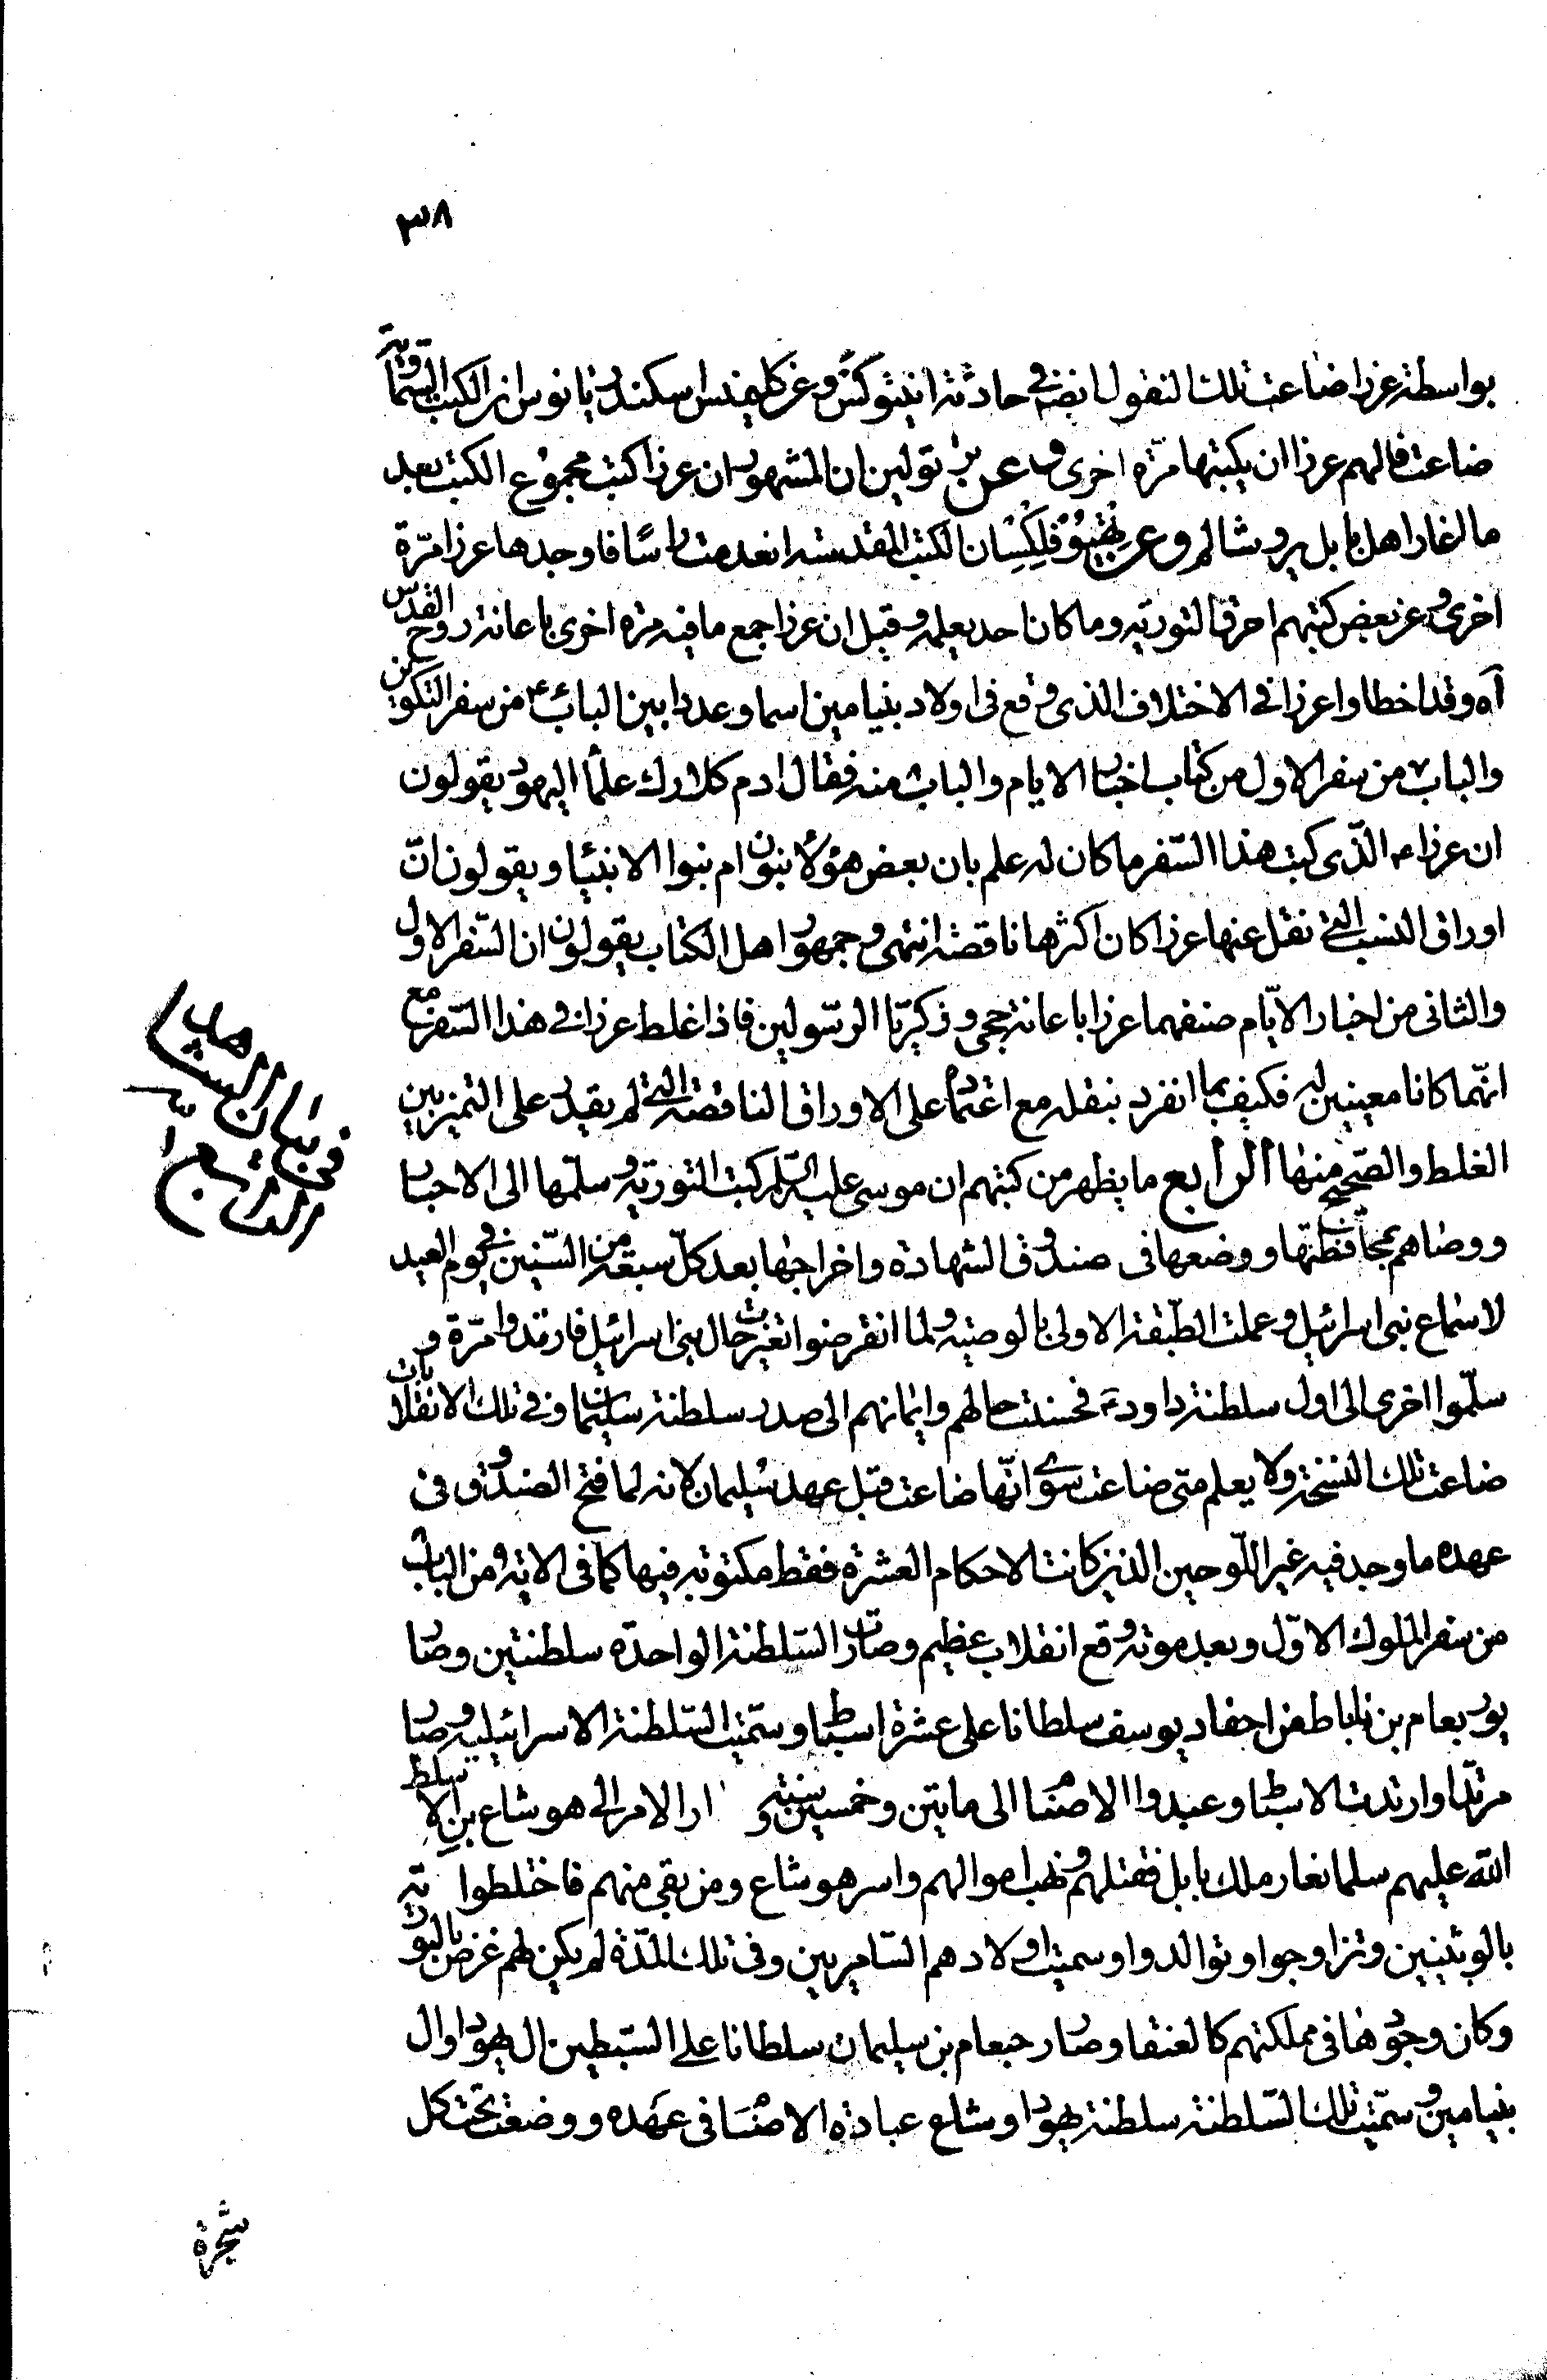 ٣٨
بواسطة عزرا ضاعت تلك النقول ايضا في حادثة انيتوكس وعن كليمنس اسكندريانوس ان الكتب السماوية
ضاعت فالهم عزرا ان يكتبها مرّة اخرى وعن تر تولين ان المشهور ان عزرا كتب مجموع الكتب بعد
ما اغار اهل بابل يروشالم وعن تهيوفلكس ان الكتب المقدسة انعدمت راسًا فاوجدها عزرا مرّة
اخرى وعن بعض كتبهم احرق التورية وما كان احد يعلمه وقيل ان عزرا جمع ما فيه مرة اخرى باعانة روح القدس
آه وقد اخطاوا عزرا في الاختلاف الذى وقع فى اولاد بنيامين اسما وعددا بين الباب ٤٦ من سفر التكوين
والباب ٧ من سفر الاول من كتاب اخبار الايام والباب ٨ منه فقال ادم كلارك علما اليهود يقولون
ان عزرا ع الّذى كتب هذا السّفر ما كان له علم بان بعض هؤلا بنون ام بنوا الابنيا ويقولون انّ
اوراق النسب التي نقل عنها عزرا كان اكثرها ناقصة انتهى وجمهور اهل الكتاب يقولون ان السّفر الاول
والثانى من اخبار الايّام صنفهما عزرا باعانة حجى وزكريّا الرسّولين فاذا غلط عزرا في هذا السّفر مع
انهّما كانا معينين له فكيف بما انفرد بنقله مع اعتماده على الاوراق الناقصة التي لم يقدر على التميز بين
الغلط والصّحيح منها الرابع ما يظهر من كتبهم ان موسى عليه السّلم كتب التورية وسلّمها الى الاحبار
ووصاهم بمحافظتها ووضعها فى صندوق الشهادة واخراجها بعد كلّ سبعة من السّنين في يوم العيد
لاسماع بنى اسرائيل وعملت الطّبقة الاولى بالوصيّة ولما انقرضوا تغيرت حال بنى اسرائيل فارتدوا مرّة و
سلّموا اخرى الى اول سلطنة داود ع فحسنت حالهم وايمانهم الى صدر سلطنة سليمان وفي تلك الانقلابات
ضاعت تلك النسخة ولا يعلم متى ضاعت سوى انّها ضاعت قبل عهد سليمان لانه لما فتح الصندوق فى
عهده ما وجد فيه غير اللّوحين الذين كانت الاحكام العشرة فقط مكتوبة فيها كما فى الاية ٩ من الباب ٨
من سفر الملوك الاوّل وبعد موته وقع انقلاب عظيم وصارت السّلطنة الواحدة سلطنتين وصار
يوربعام بن ناباط من احفاد يوسف سلطانا على عشرة اسباط وسمّيت السّلطنة الاسرائيلية وصار
مرتدّا وارتدت الاسباط وعبدوا الاصنام الى مايتين وخمسين سنة و ار الامر الى هوشاع بن الا سلط
الله عليهم سلمانغار ملك بابل فقتلهم ونهب اموالهم واسر هوشاع ومن بقى منهم فاختلطوا
بالوثنيين وتزاوجوا وتوالدوا وسميت اولادهم السّامريين وفى تلك المدّة لم يكن لهم غرض بالتورية
وكان وجودها فى مملكتهم كالعنقا وصار رحبعام بن سليمان سلطانا على السّبطين ال يهودا وال
بنيامين وسمّيت تلك السّلطنة سلطنة يهودا وشاع عبادة الاصنام فى عهده ووضعت تحت كل
فى بيان الشاهد
الرابع
شجرة